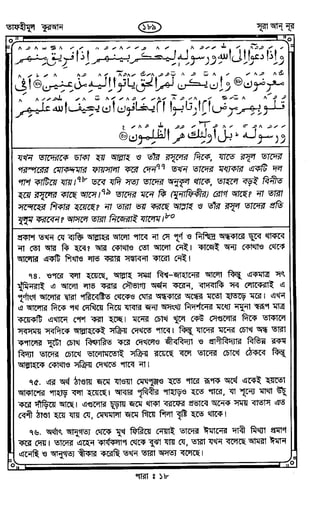 তাফহীমুল কুরআন
১৮৯
সূরা আন নূর
وَإِذَا دُعُوا إِلَى اللهِ وَرَسُولِهِ لِيَحْكُمَ بَيْنَهُمْ إِذَا فَرِيقٌ مِّنْهُمْ
مُّعْرِضُونَ ۝ وَإِنْ يَّكُنْ لَّهُمُ الْحَقُّ يَأْتُوا إِلَيْهِ مُذْعِنِينَ ۝ أَفِي
قُلُوبِهِمْ مَّرَضٌ أَمِ ارْتَابُوا أَمْ يَخَافُونَ أَنْ يَّحِيفَ اللهُ عَلَيْهِمْ
وَرَسُولُهُ ۚ بَلْ أُولَٰئِكَ هُمُ الظّٰلِمُونَ ۝
যখন তাদেরকে ডাকা হয় আল্লাহ ও তাঁর রসূলের দিকে, যাতে রসূল তাদের
পরস্পরের মোকদ্দমার ফায়সালা করে দেন৭৭ তখন তাদের মধ্যকার একটি দল
পাশ কাটিয়ে যায়।৭৮ তবে যদি সত্য তাদের অনুকূল থাকে, তাহলে বড়ই বিনীত
হয়ে রসূলের কাছে আসে।৭৯ তাদের মনে কি (মুনাফিকীর) রোগ আছে? না তারা
সন্দেহের শিকার হয়েছে? না তারা ভয় করছে আল্লাহ ও তাঁর রসূল তাদের প্রতি
যুলুম করবেন? আসলে তারা নিজেরাই যালেম।৮০
প্রকাশ তখন যে ব্যক্তি আল্লাহর আলো পাবে না সে পূর্ণ ও নিশ্ছিদ্র অন্ধকারে ডুবে থাকবে
না তো আর কি হবে? আর কোথাও তো আলো নেই। কাজেই অন্য কোথাও থেকে
আলোর একটি শিখাও লাভ করার সম্ভাবনা কারো নেই।
৭৪. ওপরে বলা হয়েছে, আল্লাহ সমগ্র বিশ্ব-জাহানের আলো কিন্তু একমাত্র সৎ
মুমিনরাই এ আলো লাভ করার সৌভাগ্য অর্জন করেন, বাদবাকি সব লোকেরাই এ
পূর্ণাংগ আলোর দ্বারা পরিবেষ্টিত থেকেও ঘোর অন্ধকারে অন্ধের মতো হাতড়ে মরে। এখন
এ আলোর দিকে পথ দেখিয়ে নিয়ে যাবার জন্য অসংখ্য নিদর্শনের মধ্যে নমুনা স্বরূপ মাত্র
কয়েকটি এখানে পেশ করা হচ্ছে। মনের চোখ খুলে কেউ সেগুলোর দিকে তাকালে
সবসময় সবদিকে আল্লাহকেই সক্রিয় দেখতে পাবে। কিন্তু যাদের মনের চোখ অন্ধ তারা
কপালের দুটো চোখ বিস্ফারিত করে দেখলেও জীববিদ্যা ও প্রাণীবিদ্যার বিভিন্ন রকম
বিদ্যা তাদের চোখে ভালোমতোই সক্রিয় রয়েছে বলে তাদের চোখে ঠেকবে কিন্তু
আল্লাহকে কোথাও সক্রিয় দেখতে পাবে না।
৭৫. এর অর্থ ঠাণ্ডায় জমে যাওয়া মেঘপুঞ্জও হতে পারে রূপক অর্থে একেই হয়তো
আকাশের পাহাড় বলা হয়েছে। আবার পৃথিবীর পাহাড়ও হতে পারে, যা শূন্যে মাথা উঁচু
করে দাঁড়িয়ে আছে। এগুলোর চূড়ায় জমে থাকা বরফের প্রভাবে অনেক সময় বাতাস এত
বেশী ঠাণ্ডা হয়ে যায় যে, মেঘমালা জমে গিয়ে শিলা বৃষ্টি হতে থাকে।
৭৬. অর্থাৎ আনুগত্য থেকে মুখ ফিরিয়ে নেয়াই তাদের ঈমানের দাবী মিথ্যা প্রমাণ
করে দেয়। তাদের এহেন কার্যকলাপ থেকে বুঝা যায় যে, তারা যখন বলেছে আমরা ঈমান
এনেছি ও আনুগত্য স্বীকার করেছি তখন তারা অসত্য বলেছে।
পারা : ১৮